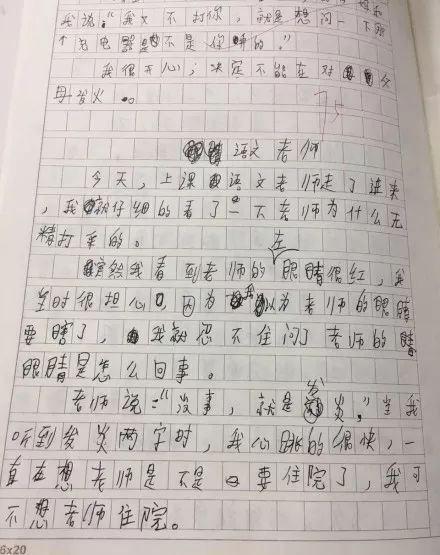 我说:“我又不打你,就是想问一下那
个充电器是不是你弄的。”
我很开心,决定不能在对父
母发火。
75
语文老师
今天,上课语文老师走了进来
,我就仔细的看了一下老师为什么无
精打采的。
左
突然我看到老师的眼睛很红,我
当时很担心,因为我以为老师的眼睛
要瞎了,我就忍不住问了老师的
眼睛是怎么回事。
老师说:“没事,就是发炎。”当我
听到发炎两字时,我心跳的很快,一
直在想老师是不是要住院了,我可
不想老师住院。
6x20